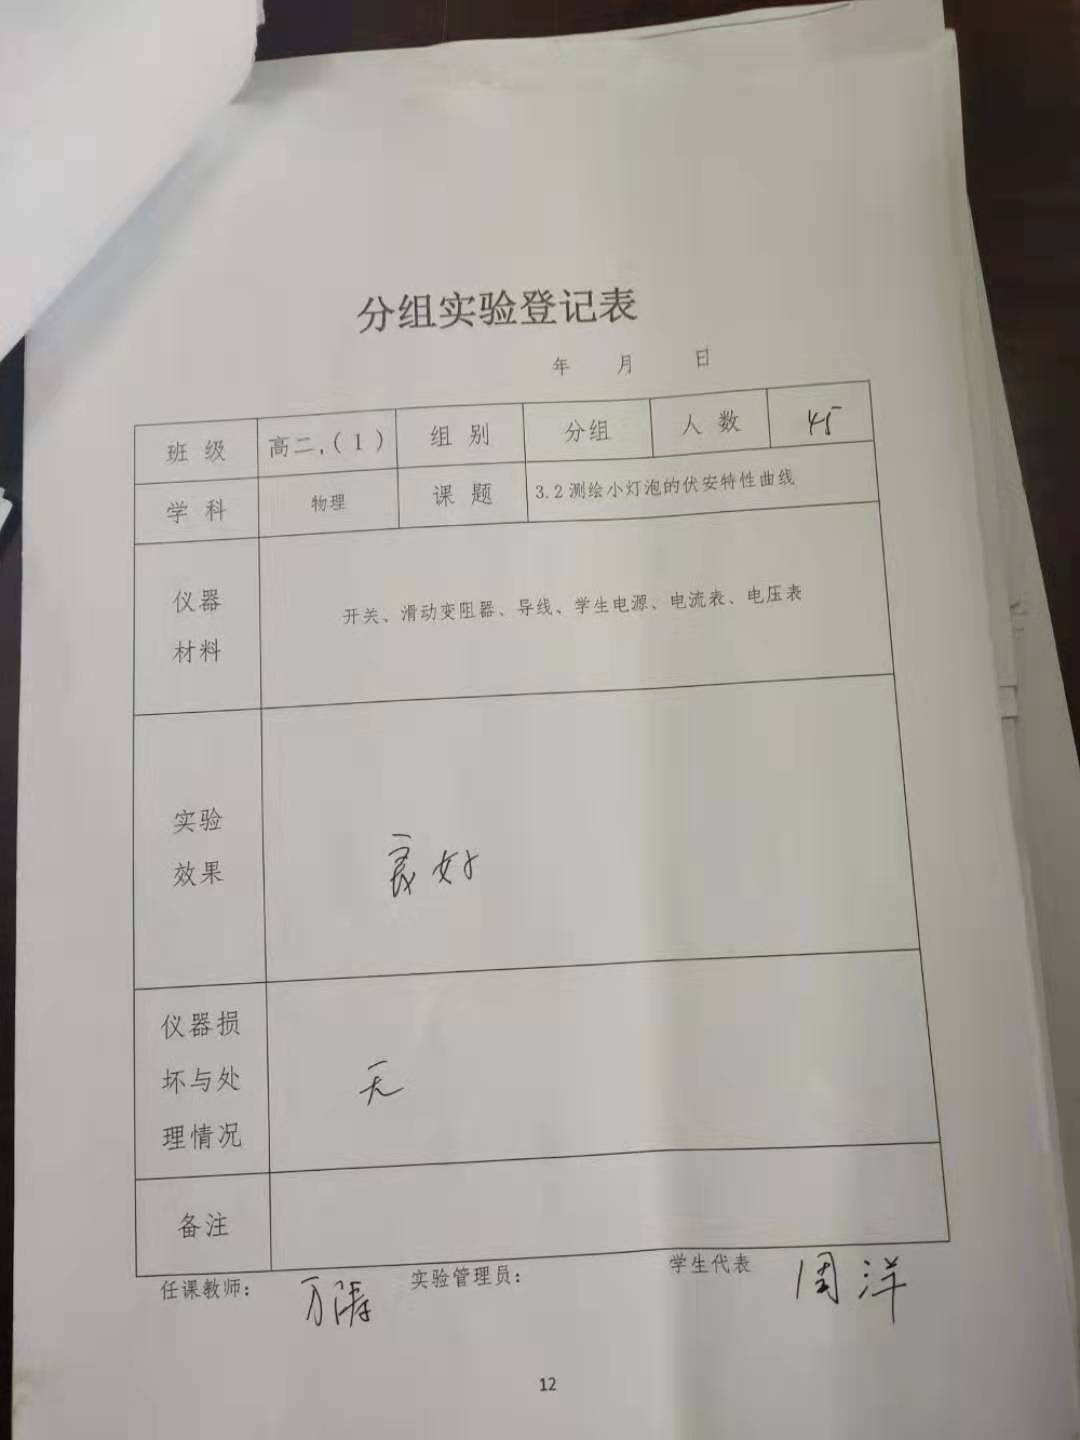 分组实验登记表
年 月 日
班 级 高二,(1) 组 别 分组 人 数 45
学 科 物理 课 题 3.2测绘小灯泡的伏安特性曲线
仪器
材料
开关、滑动变阻器、导线、学生电源、电流表、电压表
实验
效果
良好
仪器损
坏与处
理情况
无
备注
任课教师: 万涛 实验管理员: 学生代表 周洋
12